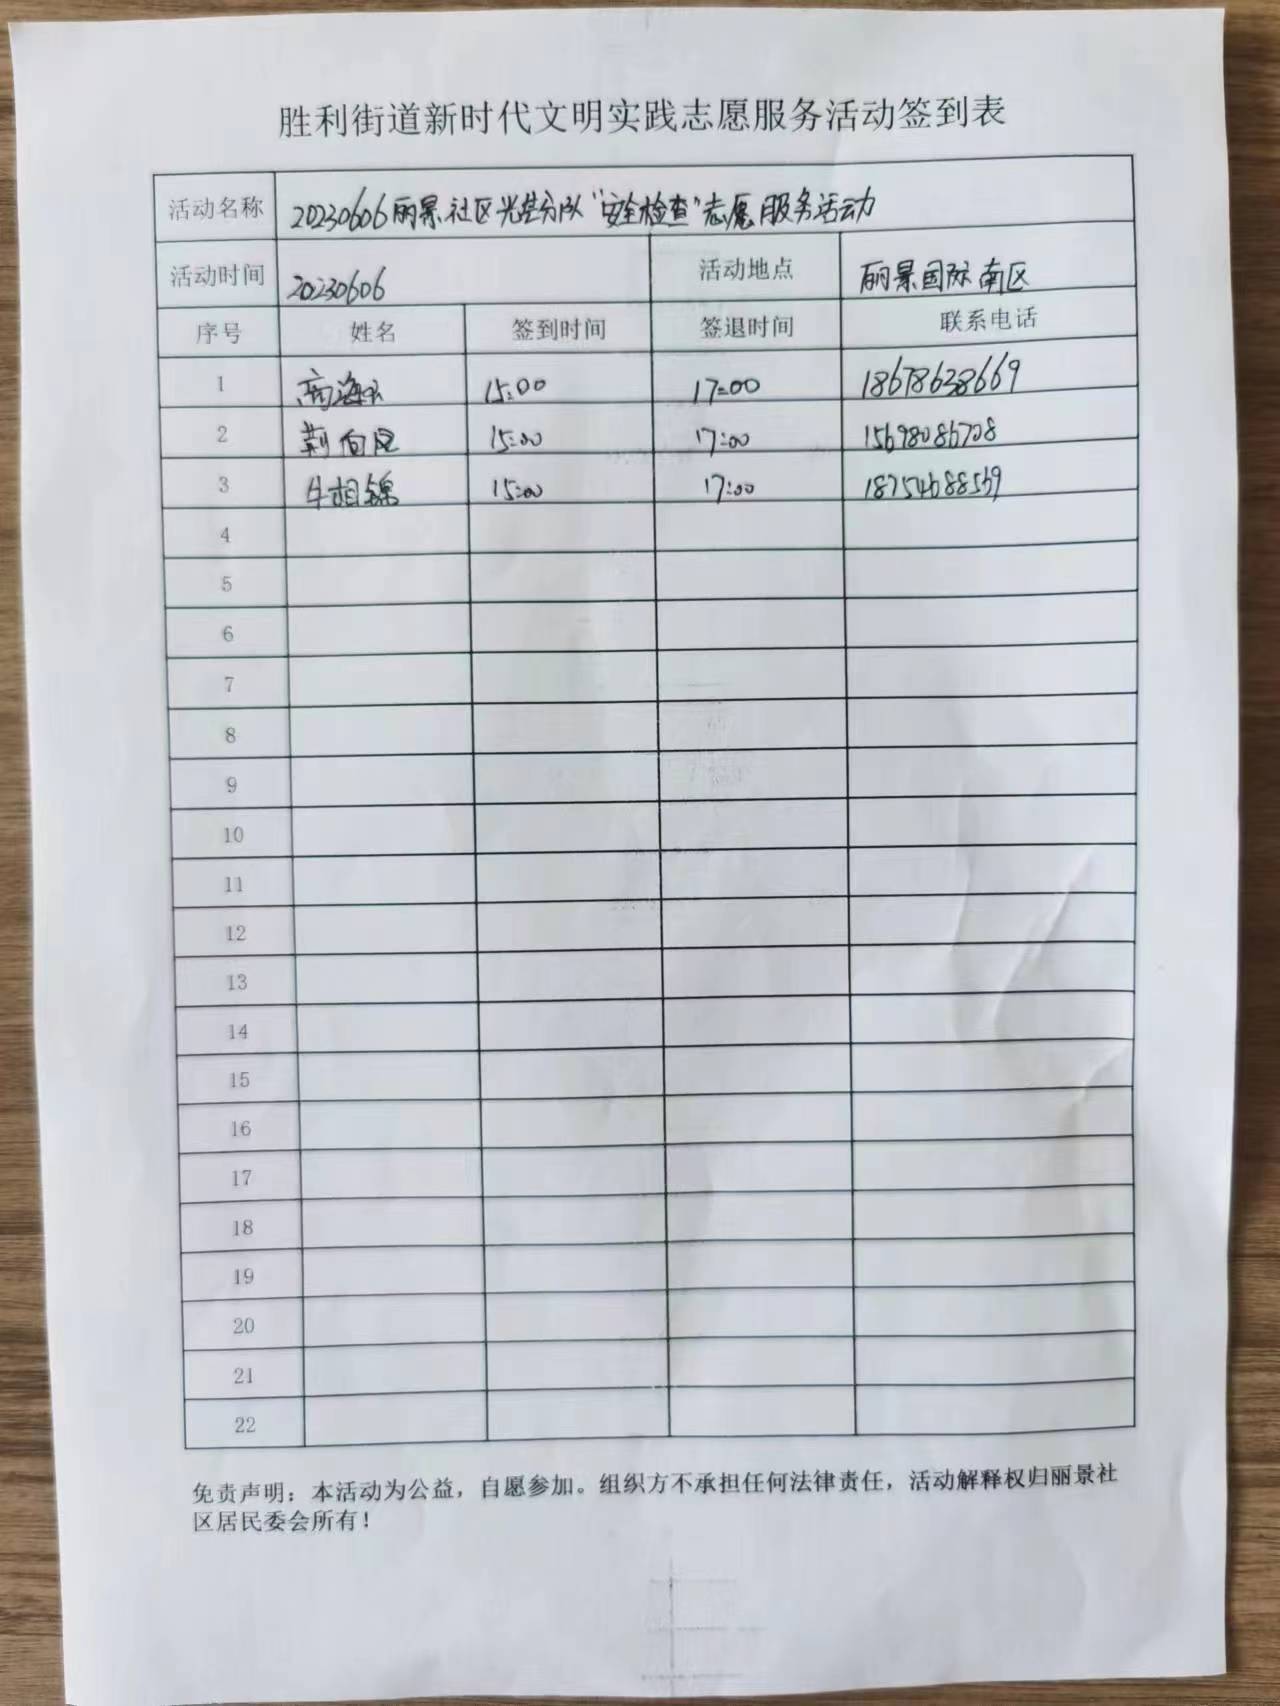 胜利街道新时代文明实践志愿服务活动签到表
活动名称 20230606丽景社区光荣分队“安全检查”志愿服务活动
活动时间 20230606 活动地点 丽景国际南区
序号 姓名 签到时间 签退时间 联系电话
1 商海云 15:00 17:00 18678638669
2 荆向民 15:00 17:00 15698086708
3 牛相锦 15:00 17:00 18754688569
4
5
6
7
8
9
10
11
12
13
14
15
16
17
18
19
20
21
22
免责声明：本活动为公益，自愿参加。组织方不承担任何法律责任，活动解释权归丽景社
区居民委会所有！